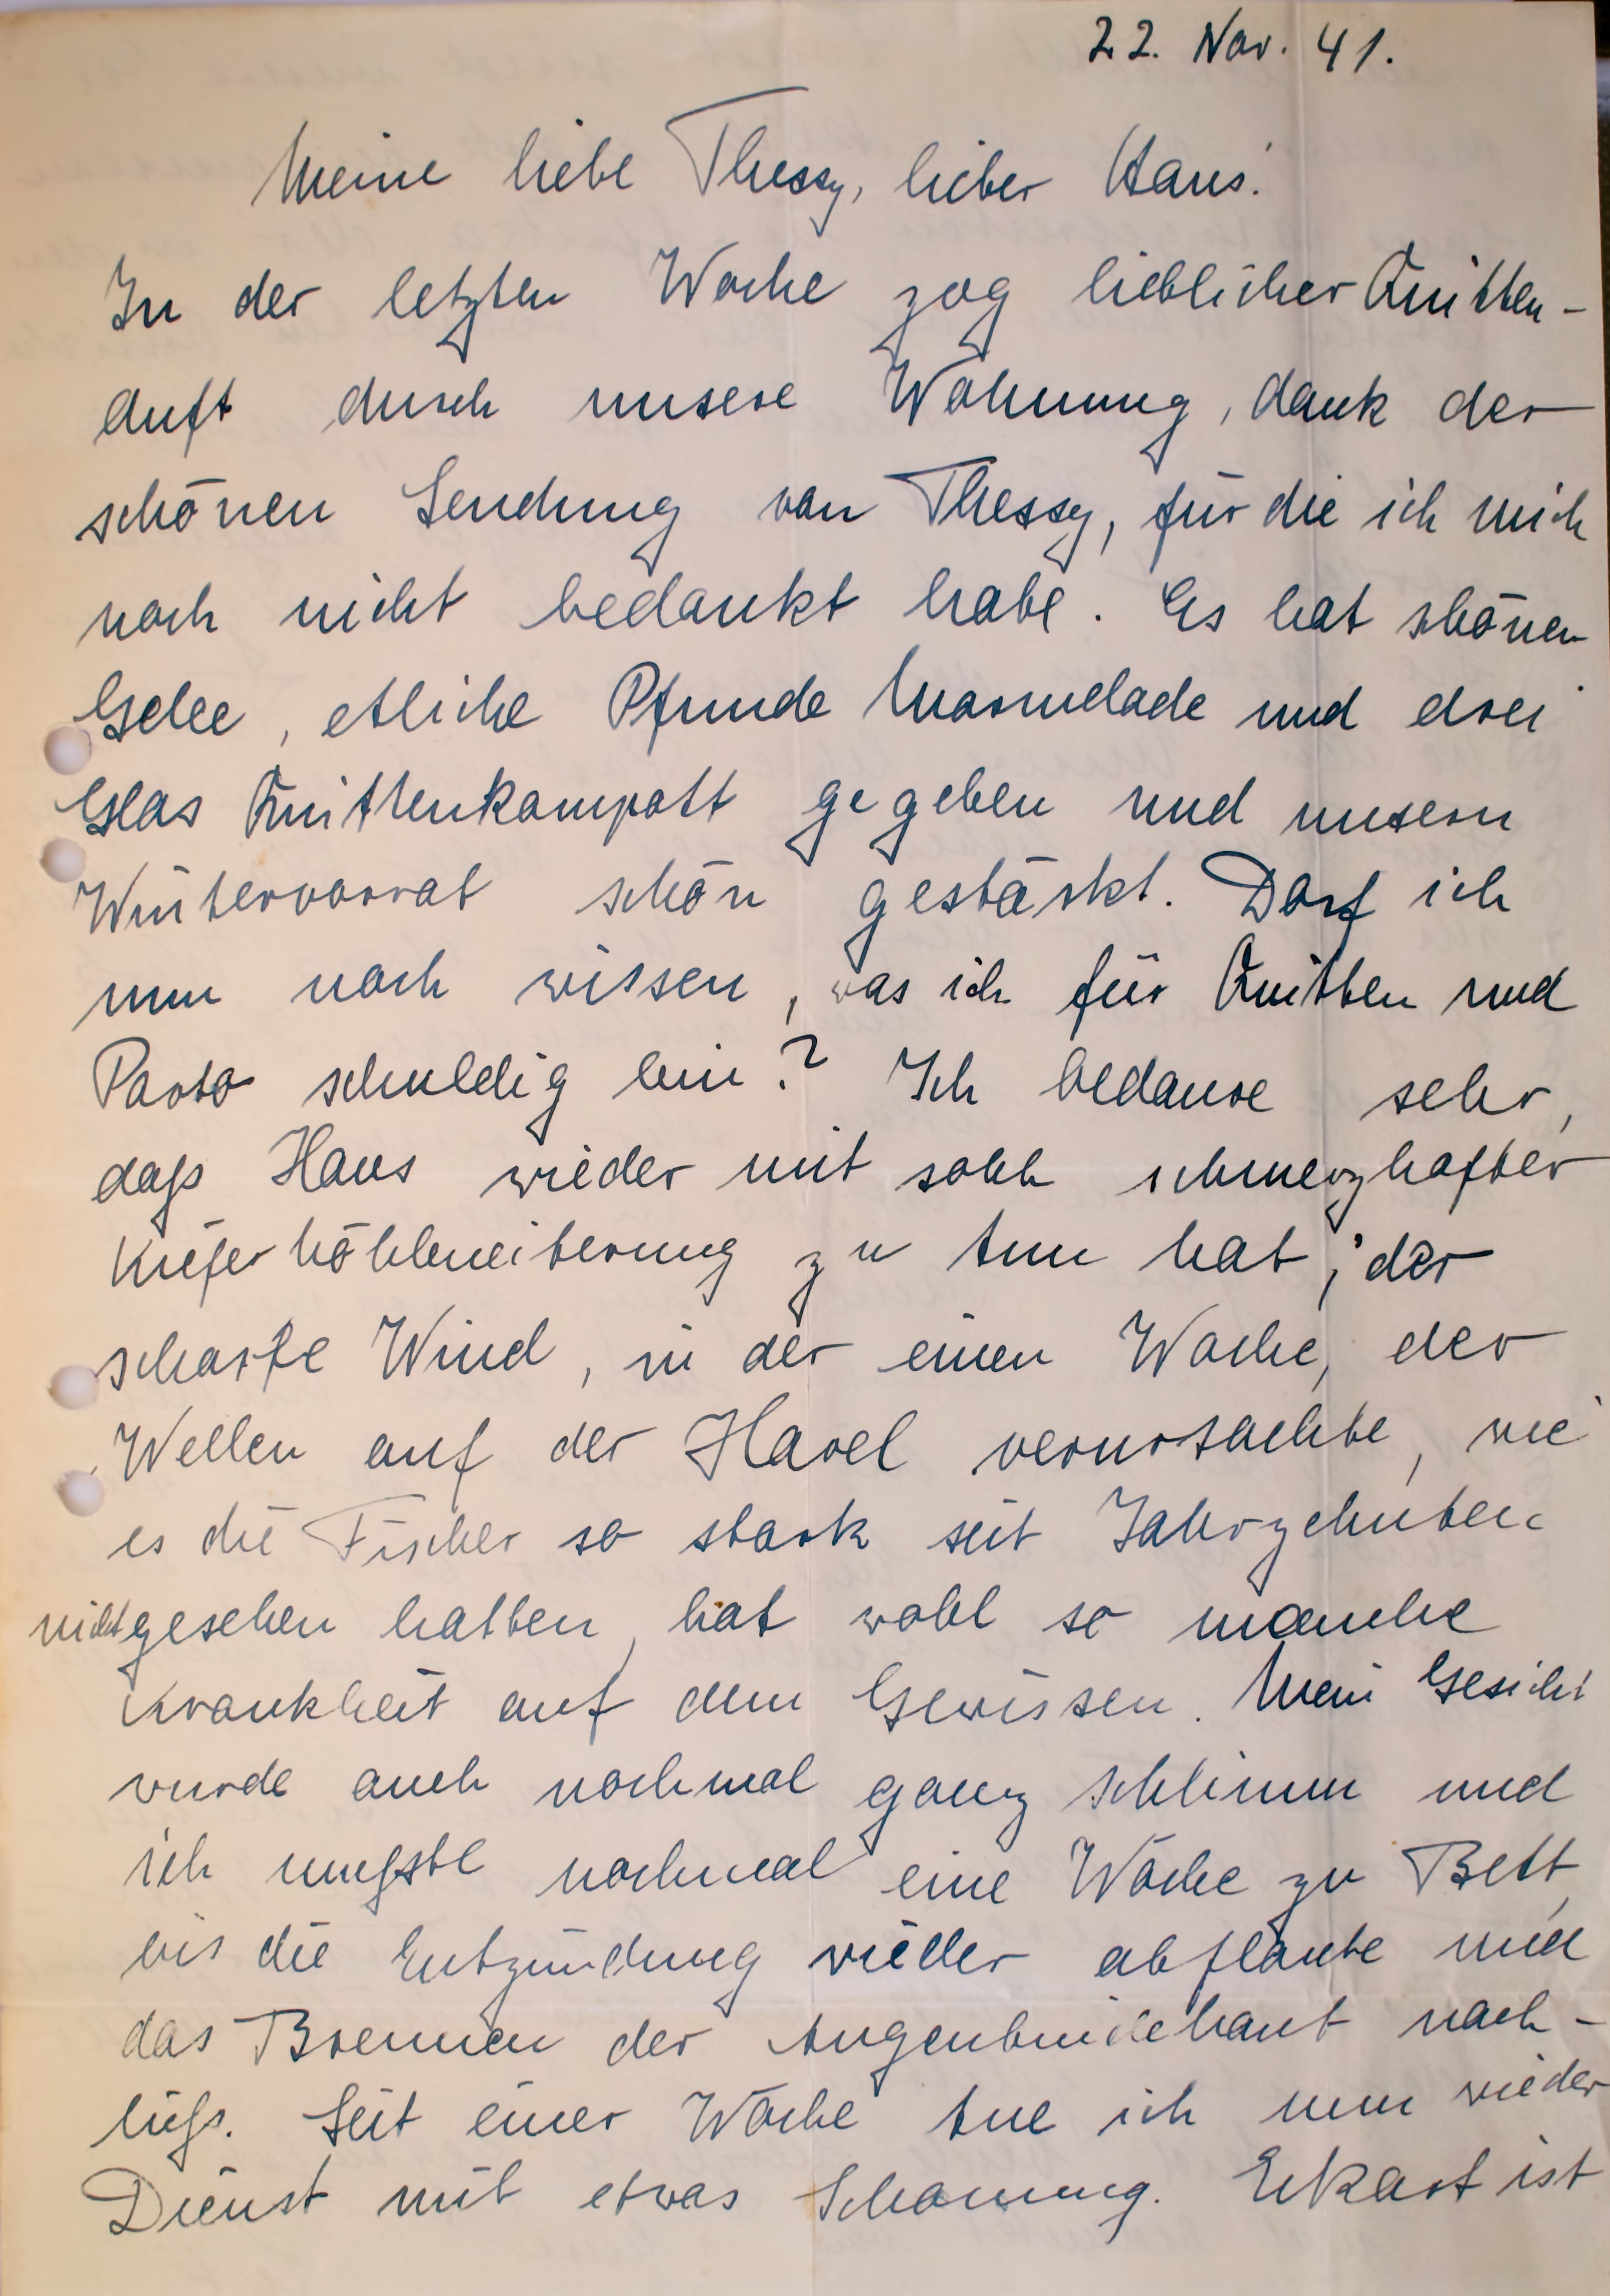 22. Nov. 41.
Meine liebe Thessy, lieber Hans!
In der letzten Woche zog lieblicher Quitten-
duft durch unsere Wohnung, dank der
schönen Sendung von Thessy, für die ich mich
noch nicht bedankt habe. Es hat schönen
Gelee, etliche Pfunde Marmelade und drei
Glas Quittenkompott gegeben und unsern
Wintervorrat schön gestärkt. Darf ich
nun noch wissen, was ich für Quitten und
Porto schuldig bin? Ich bedaure sehr,
daß Hans wieder mit solch schmerzhafter
Kieferhöhleneiterung zu tun hat; der
scharfe Wind, in der einen Woche, der
Wellen auf der Havel verursachte, wie
es die Fischer so stark seit Jahrzehnten
nicht gesehen hatten, hat wohl so manche
Krankheit auf dem Gewissen. Mein Gesicht
wurde auch nochmal ganz schlimm und
ich mußste nochmal eine Woche zu Bett,
bis die Entzündung wieder abflaute und
das Brennen der Augenbindehaut nach-
ließ. Seit einer Woche tue ich nun wieder
Dienst mit etwas Schonung. Eckart ist